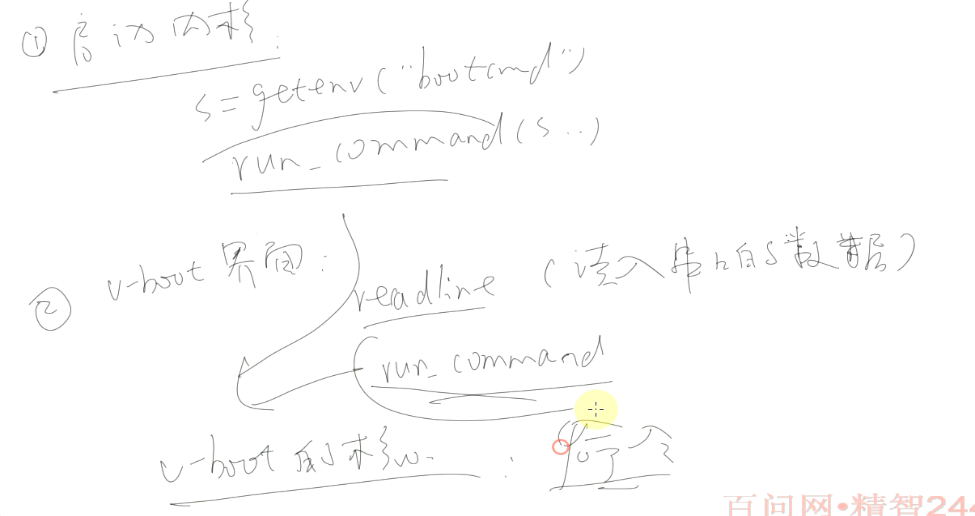 ① 启动内核:
s = getenv("bootcmd")
run_command(s...)
② u-boot 界面:
readline (读入串口的数据)
run_command
u-boot 的核心: 命令
百问网•精智24